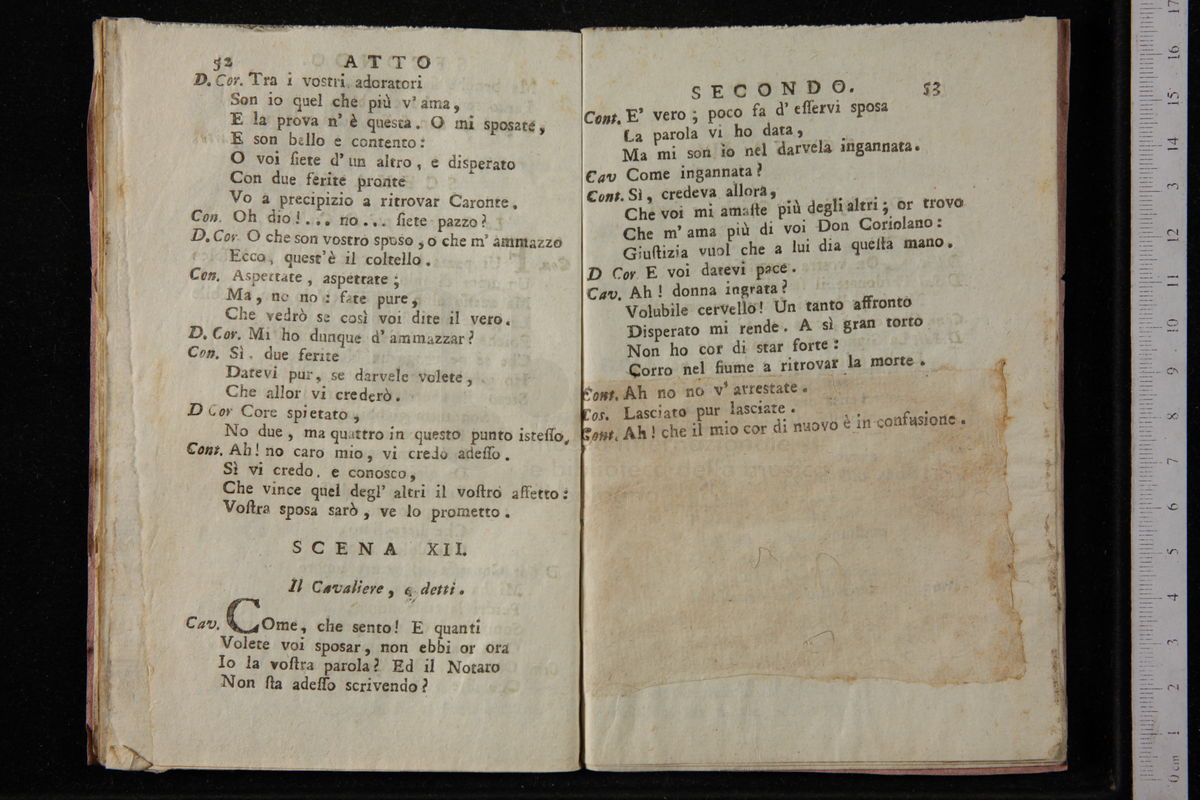 52 ATTO
D. Cor. Tra i vostri adoratori
Son io quel che più v'ama,
E la prova n'è questa. O mi sposate,
E son bello e contento:
O voi siete d'un altro, e disperato
Con due ferite pronte
Vo a precipizio a ritrovar Caronte.
Con. Oh dio!... no... siete pazzo?
D. Cor. O che son vostro sposo, o che m'ammazzo
Ecco, quest'è il coltello.
Con. Aspettate, aspettate;
Ma, no no: fate pure,
Che vedrò se così voi dite il vero.
D. Cor. Mi ho dunque d'ammazzar?
Con. Sì. due ferite
Datevi pur, se darvele volete,
Che allor vi crederò.
D Cor Core spietato,
No due, ma quattro in questo punto istesso.
Cont. Ah! no caro mio, vi credo adesso.
Sì vi credo. e conosco,
Che vince quel degl' altri il vostro affetto:
Vostra sposa sarò, ve lo prometto.
SCENA XII.
Il Cavaliere, e detti.
Cav. Come, che sento! E quanti
Volete voi sposar, non ebbi or ora
Io la vostra parola? Ed il Notaro
Non sta adesso scrivendo?
SECONDO. 53
Cont. E' vero; poco fa d'esservi sposa
La parola vi ho data,
Ma mi son io nel darvela ingannata.
Cav Come ingannata?
Cont. Sì, credeva allora,
Che voi mi amaste più degli altri; or trovo
Che m'ama più di voi Don Coriolano:
Giustizia vuol che a lui dia questa mano.
D Cor E voi datevi pace.
Cav. Ah! donna ingrata?
Volubile cervello! Un tanto affronto
Disperato mi rende. A sì gran torto
Non ho cor di star forte:
Corro nel fiume a ritrovar la morte.
Cont. Ah no no v' arrestate.
Cos. Lasciato pur lasciate.
Cont. Ah! che il mio cor di nuovo è in confusione.